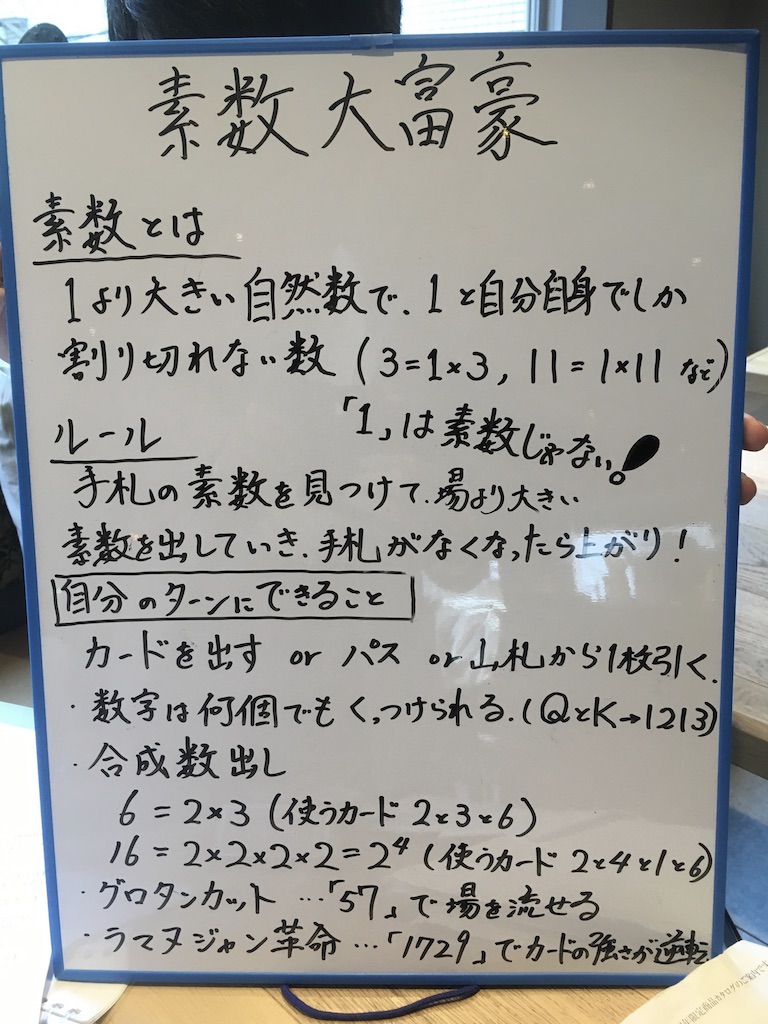 素数大富豪
素数とは
1より大きい自然数で、1と自分自身でしか
割り切れない数 (3=1×3, 11=1×11 など)
「1」は素数じゃない!
ルール
手札の素数を見つけて、場より大きい
素数を出していき、手札がなくなったら上がり!
自分のターンにできること
カードを出す or パス or 山札から1枚引く.
・数字は何個でもくっつけられる.(QとK→1213)
・合成数出し
6=2×3 (使うカード 2と3と6)
16=2×2×2×2=2⁴ (使うカード 2と4と1と6)
・グロタンカット …「57」で場を流せる
・ラマヌジャン革命 …「1729」でカードの強さが逆転